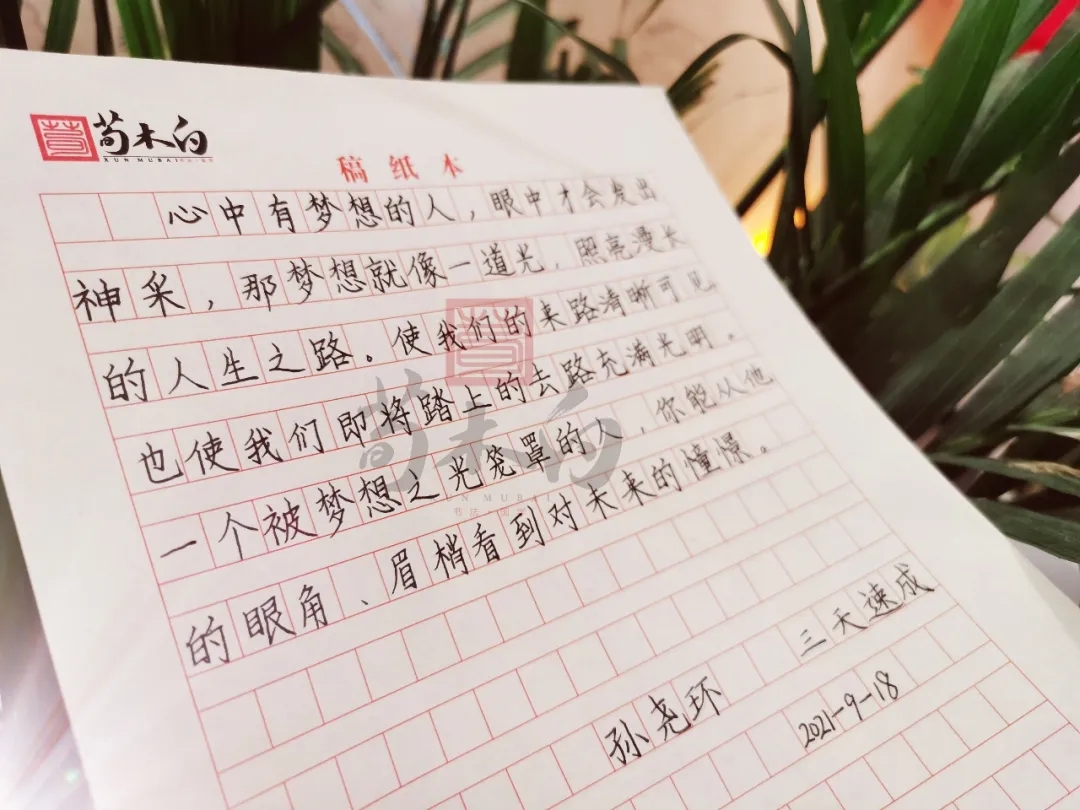 荀木白
XUN MUBAI
稿纸本
心中有梦想的人，眼中才会发出
神采，那梦想就像一道光，照亮漫长
的人生之路。使我们的来路清晰可见
也使我们即将踏上的去路充满光明。
一个被梦想之光笼罩的人，你能从他
的眼角、眉梢看到对未来的憧憬。
三天速成
孙尧环
2021-9-18
荀木白
XUN MUBAI